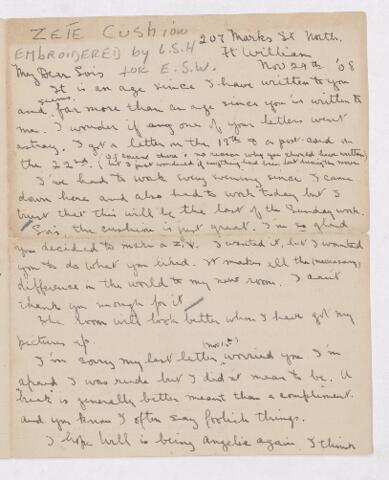 ZETE CUSHION
EMBROIDERED by L.S.H
FOR E.S.W.
207 Marks St North,
Ft William
Nov 29th '08
My Dear Lois
It is an age since I have written to you
and seems far more than an age since you've written to
me. I wonder if any one of your letters went
astray. I got a letter on the 17th & a post-card on
the 22nd. (Of course there is no reason why you should have written,
but I just wondered if anything had been lost during the move)
I've had to work every evening since I came
down here and also had to work today but I
trust that this will be the last of the Sunday work.
Lois, the cushion is just great. I'm so glad
you decided to make a Z.Y. I wanted it, but I wanted
you to do what you liked. It makes all the (necessary)
difference in the world to my new room. I can't
thank you enough for it
The room will look better when I have got my
pictures up.
I'm sorry my last letter worried you I'm
afraid I was rude but I didn't mean to be. A
is generally better meant than a compliment.
and you know I often say foolish things.
I hope Will is being angelic again. I think